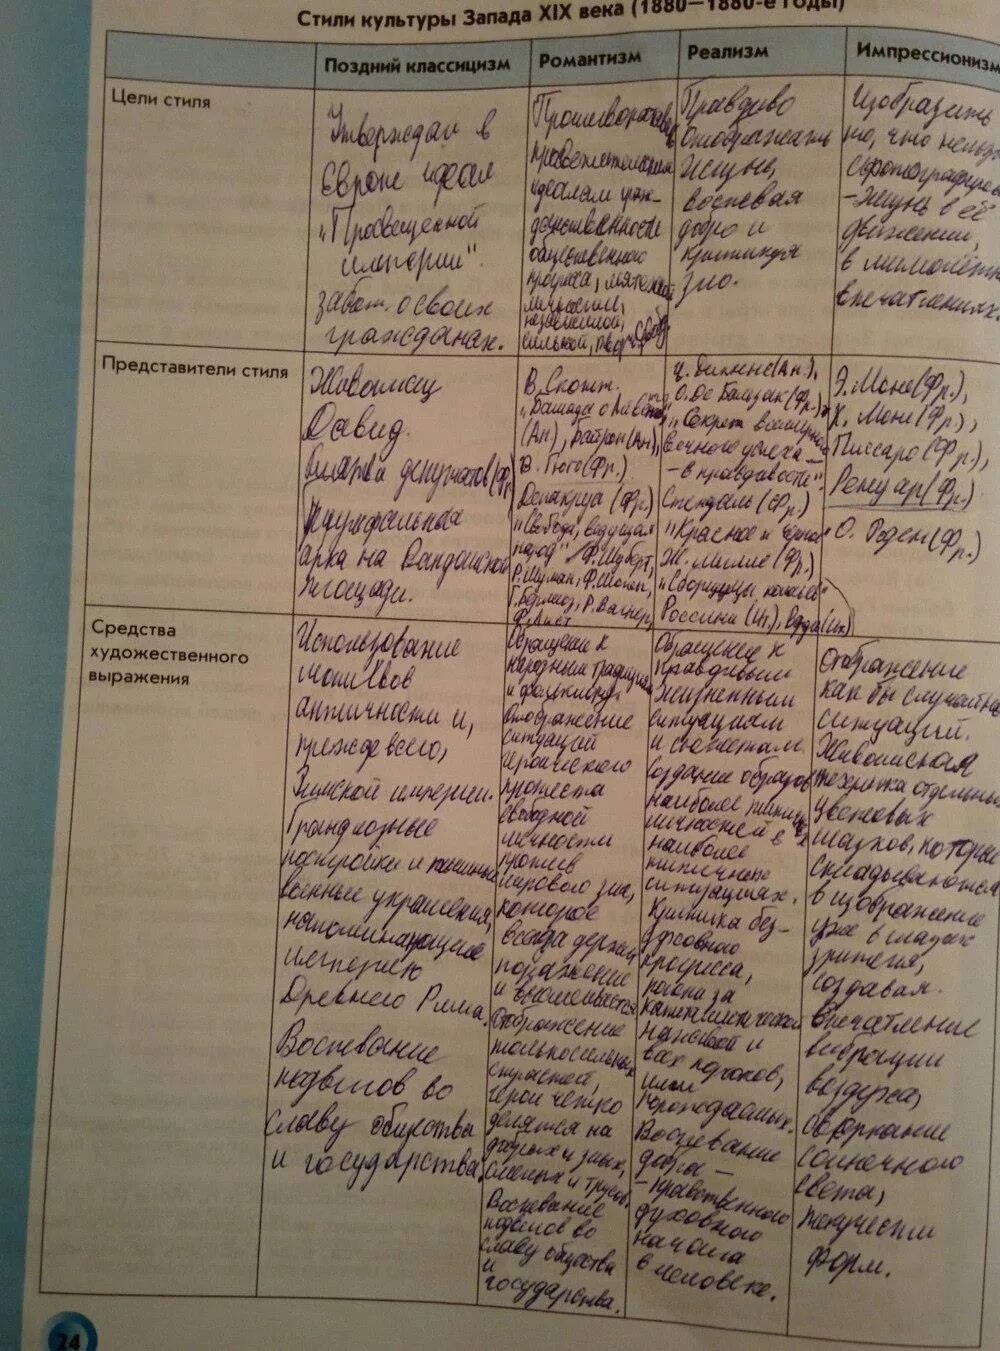 Стили культуры Запада XIX века (1880—1880-е годы)
Поздний классицизм
Романтизм
Реализм
Импрессионизм
Цели стиля
Утверждал в
Европе идеал
"Просвещенной
империи".
забот. о своих
гражданах.
Противопостав
просветительским
идеалам граж-
дественности
общественного
прогресса, мятежной
личности,
независимой,
сильной, твор. своб.
Правдиво
отображать
жизнь,
воспевая
добро и
критикуя
зло.
Изобразить
то, что нельзя
сфотографиров
-жизнь в её
движении,
в мимолётн
впечатлениях.
Представители стиля
Живописец
Давид.
депутатов (Фр)
Триумфальная
арка на Вандомской
площади.
В. Скотт.
"Баллада о
(Ан), Байрон (Ан),
В. Гюго (Фр.)
Делакруа (Фр.)
"Свобода, ведущая
народ" Ф. Шуберт,
Р. Шуман, Ф. Шопен,
Г. Берлиоз, Р. Вагнер,
Ф. Лист
Ч. Диккенс (Ан.),
О. Де Бальзак (Фр.)
"Секрет всемирно
вечного успеха -
- в правдивости".
Стендаль (Фр.)
"Красное и чёрное"
Ж. Милле (Фр.)
"Сборщицы колосьев"
Россини (Ит), Верди (Ит)
Э. Моне (Фр.),
К. Моне (Фр.),
Писсаро (Фр.),
Ренуар (Фр.)
О. Роден (Фр.)
Средства
художественного
выражения
Использование
мотивов
античности и,
прежде всего,
Римской империи.
Грандиозные
постройки и
военные украшения,
напоминающие
империю
Древнего Рима.
Воспевание
подвигов во
славу общества
и государства.
Обращение к
народным традициям
и фольклору.
Отображение
ситуаций
героического
протеста
свободной
личности
против
мирового зла,
которое
всегда держит
поражение
и высмеивается
Отображение
только сильных
страстей,
герои четко
делятся на
добрых и злых,
смелых и трусов.
Воспевание
подвигов во
славу общества
и
государства.
Обращение к
правдивым
жизненным
ситуациям
и сюжетам.
Создание образов
наиболее типичн
личностей в
наиболее
типичных
ситуациях.
Критика без-
духовного
прогресса,
погони за
капиталистической
наживой и
всех пороков,
ими
порождаемых.
Воспевание
добра -
- нравственного
духовного
начала
в человеке.
Отображение
как бы случайных
ситуаций.
Живописная
техника отдельных
цветовых
мазков, которые
складываются
в изображение
уже в глазах
зрителя,
создавая
впечатление
вибрации
воздуха,
сверкание
солнечного
света,
текучести
форм.
24